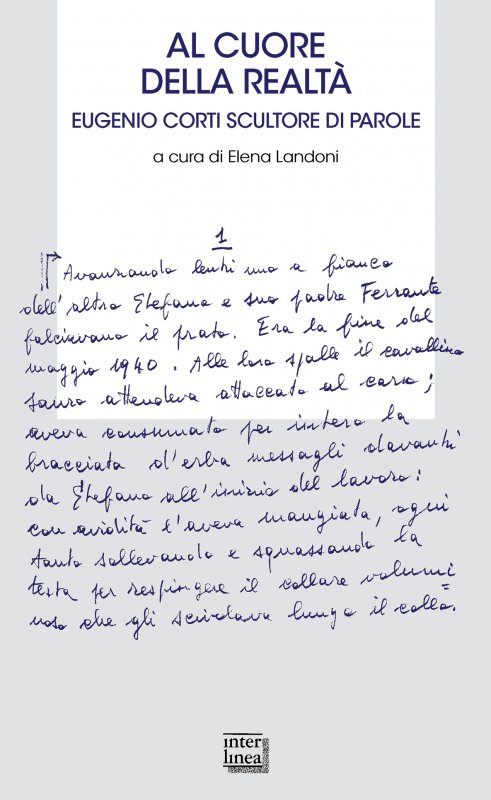 AL CUORE
DELLA REALTÀ
EUGENIO CORTI SCULTORE DI PAROLE
a cura di Elena Landoni
1
Avanzando lenti uno a fianco
dell'altro Stefano e suo padre Ferrante
falciavano il prato. Era la fine del
maggio 1940. Alle loro spalle il cavallino
sauro attendeva attaccato al carro;
aveva consumato per intero la
bracciata d'erba messagli davanti
da Stefano all'inizio del lavoro:
con avidità l'aveva mangiata, ogni
tanto sollevando e squassando la
testa per respingere il collare volumi
noso che gli scivolava lungo il collo.
inter
linea